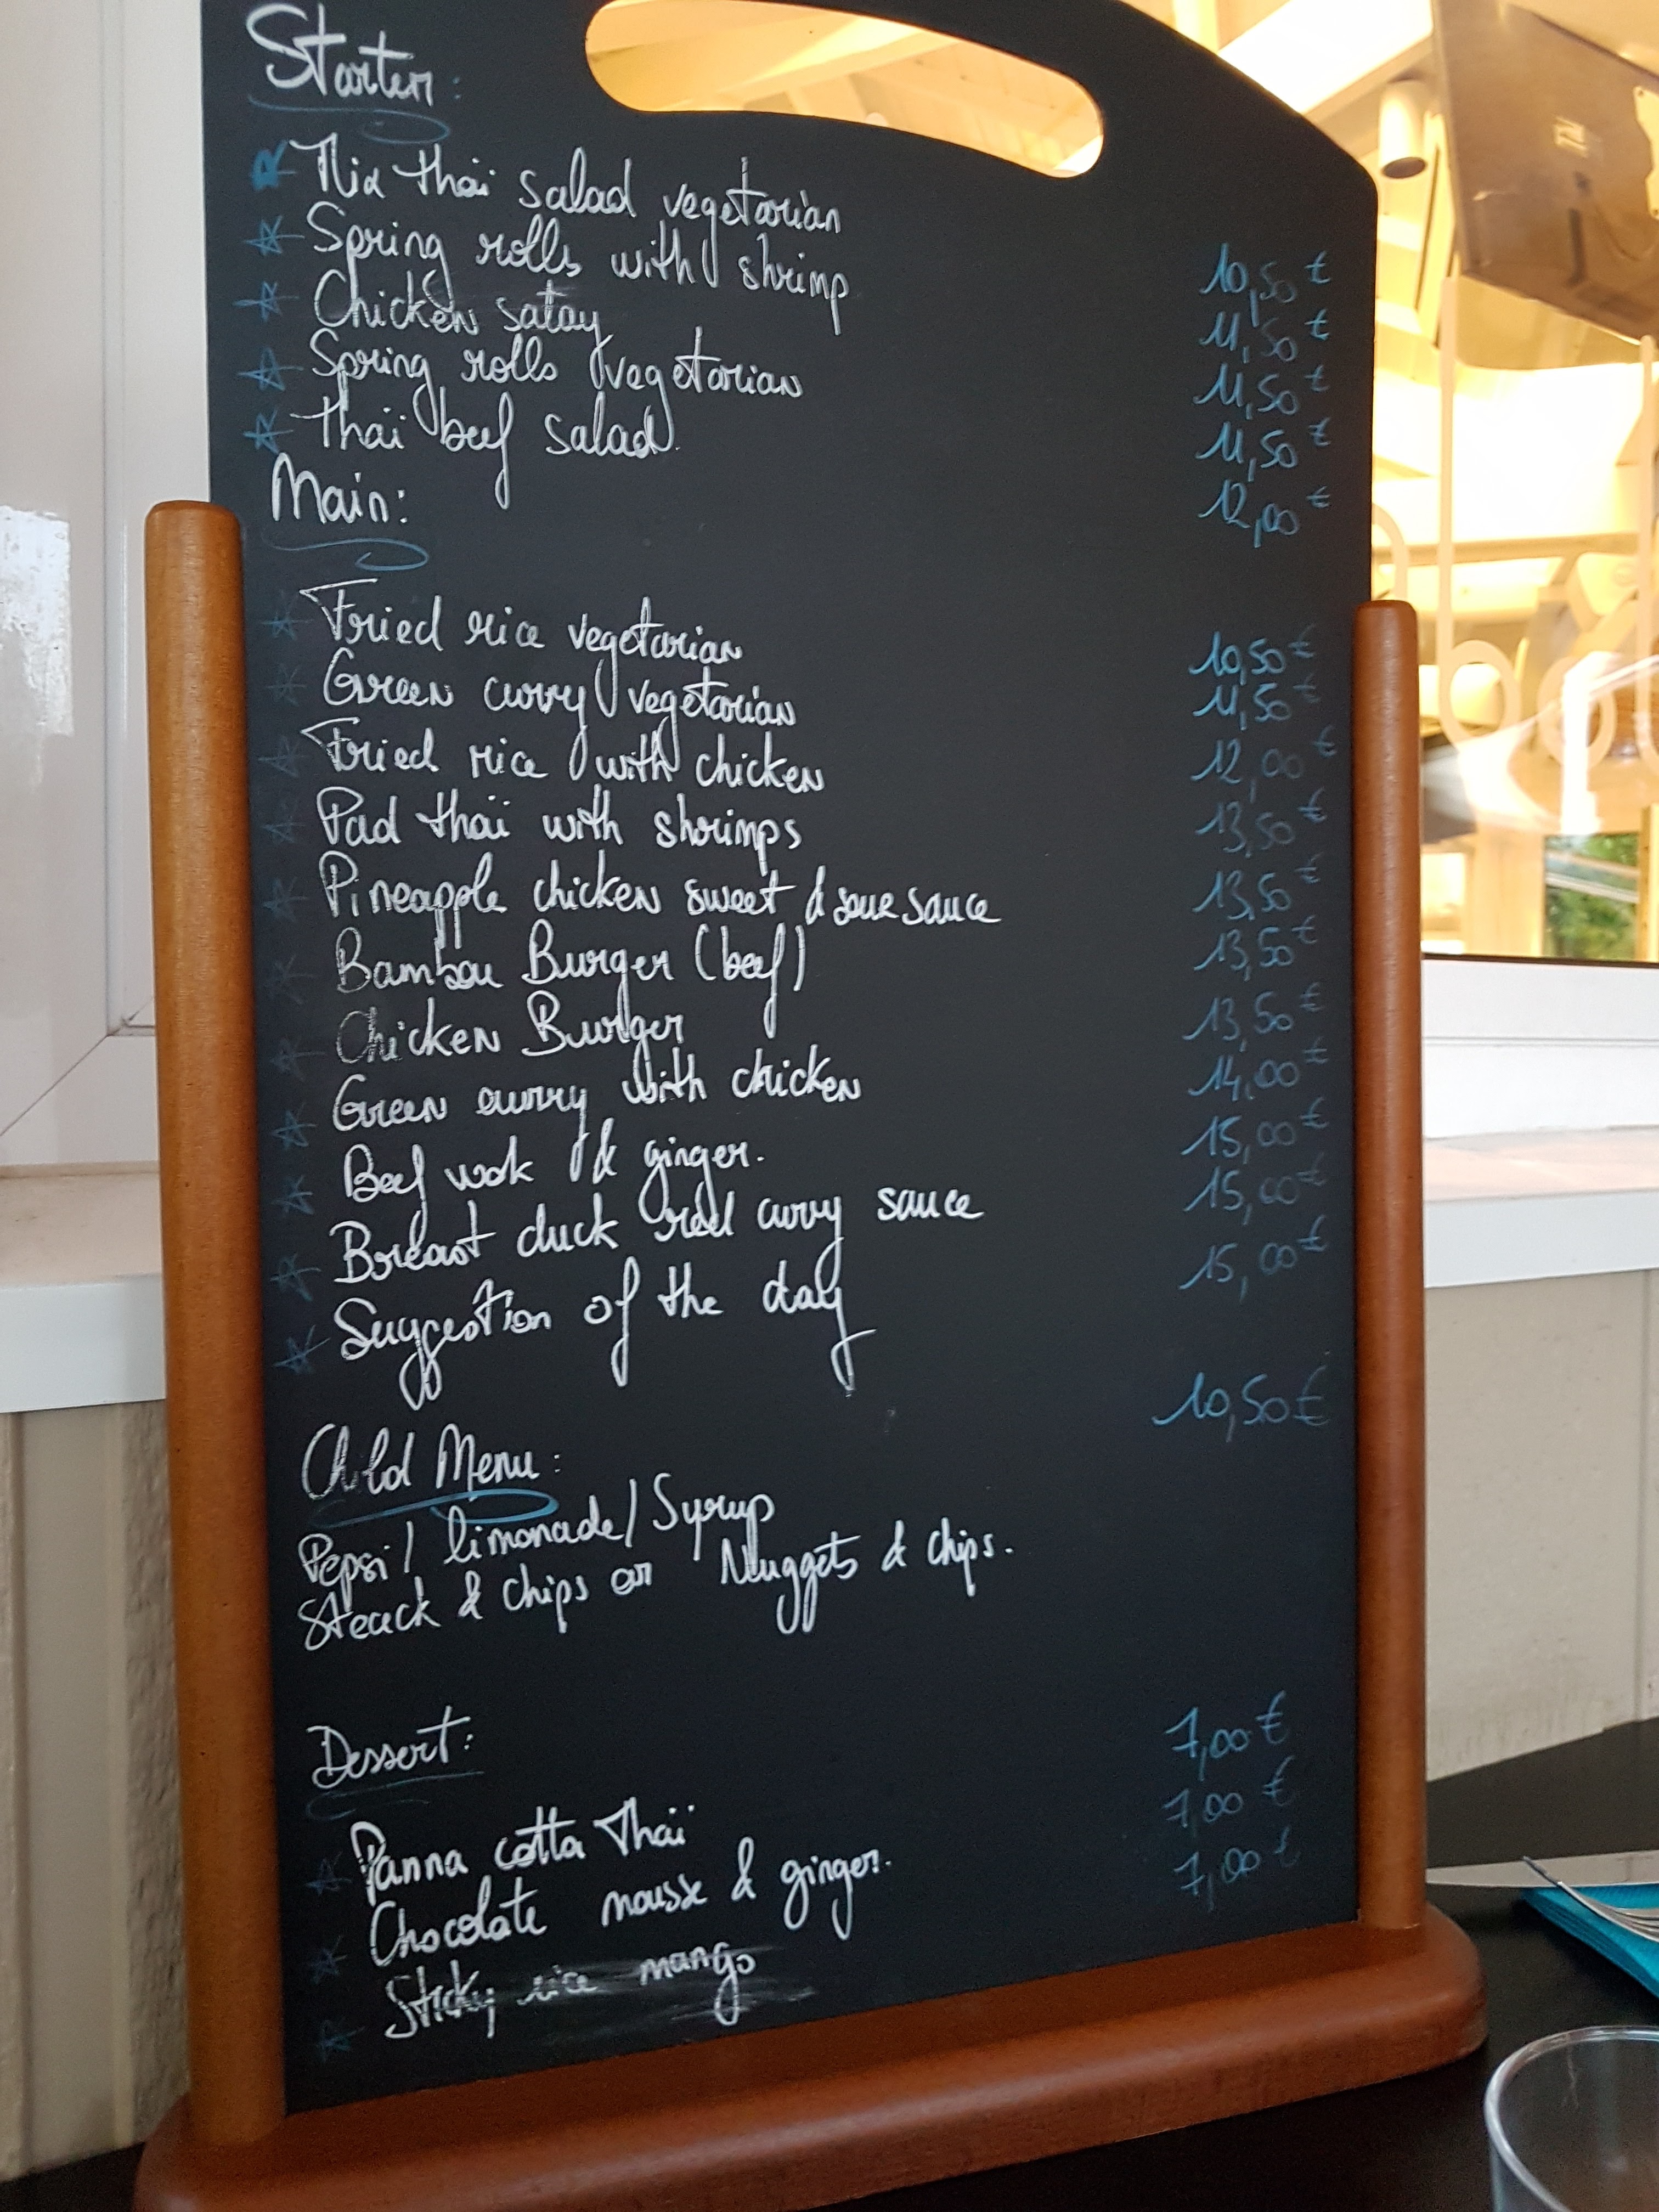 Starter:
Mix thai salad vegetarian 10,50 €
Spring rolls with shrimp 11,50 €
Chicken satay 11,50 €
Spring rolls vegetarian 11,50 €
Thaï beef salad. 12,00 €
Main:
Fried rice vegetarian 10,50 €
Green curry vegetarian 11,50 €
Fried rice with chicken 12,00 €
Pad thaï with shrimps 13,50 €
Pineapple chicken sweet & sour sauce 13,50 €
Bambou Burger (beef) 13,50 €
Chicken Burger 13,50 €
Green curry with chicken 14,00 €
Beef wok & ginger. 15,00 €
Breast duck red curry sauce 15,00 €
Suggestion of the day 15,00 €
Child Menu: 10,50 €
Pepsi / limonade / Syrup
Steack & chips or Nuggets & chips.
Dessert:
Panna cotta Thaï 7,00 €
Chocolate mousse & ginger. 7,00 €
Sticky rice mango 7,00 €